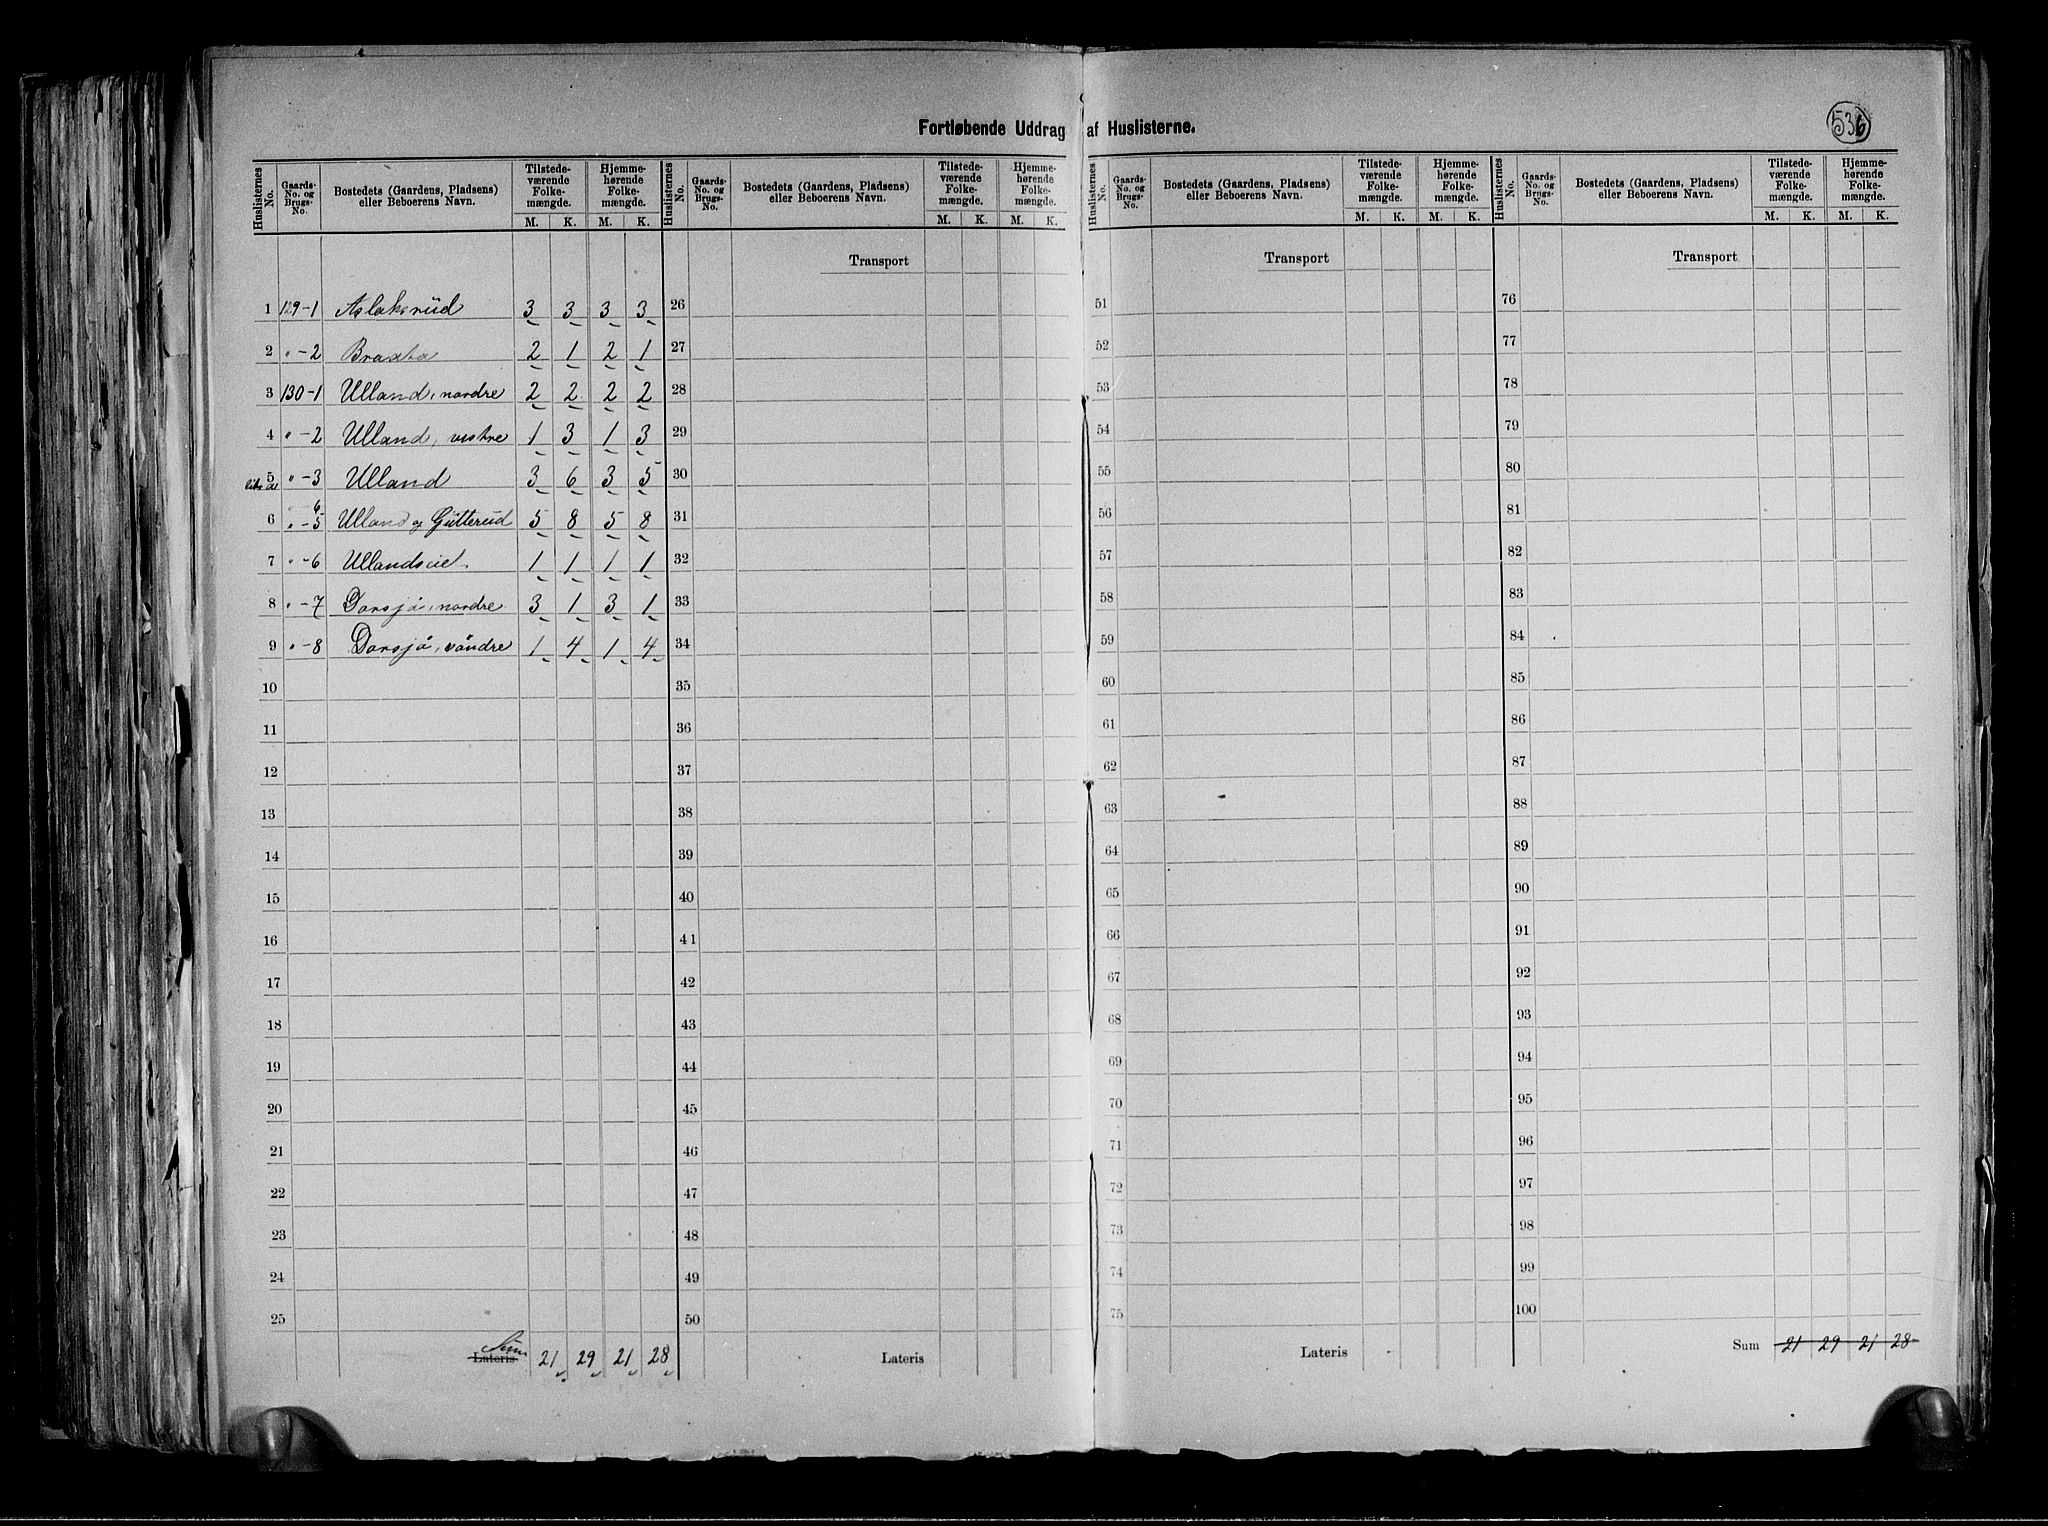 Fortløbende Uddrag af Huslisterne.
536
Huslisternes No. | Gaards-No. og Brugs-No. | Bostedets (Gaardens, Pladsens) eller Beboerens Navn. | Tilstedeværende Folkemængde. M. K. | Hjemmehørende Folkemængde. M. K.
Huslisternes No. | Gaards-No. og Brugs-No. | Bostedets (Gaardens, Pladsens) eller Beboerens Navn. | Tilstedeværende Folkemængde. M. K. | Hjemmehørende Folkemængde. M. K.
Huslisternes No. | Gaards-No. og Brugs-No. | Bostedets (Gaardens, Pladsens) eller Beboerens Navn. | Tilstedeværende Folkemængde. M. K. | Hjemmehørende Folkemængde. M. K.
Huslisternes No. | Gaards-No. og Brugs-No. | Bostedets (Gaardens, Pladsens) eller Beboerens Navn. | Tilstedeværende Folkemængde. M. K. | Hjemmehørende Folkemængde. M. K.
Transport Transport Transport
1 129-1 Aslaksrüd 3 3 3 3 26 51 76
2 " -2 2 1 2 1 27 52 77
3 130-1 Ulland, nordre 2 2 2 2 28 53 78
4 " -2 Ulland, vestre 1 3 1 3 29 54 79
5 " -3 Ulland 3 6 3 5 30 55 80
6 " -5 6 Ulland og Gütterud 5 8 5 8 31 56 81
7 " -6 Ullandseie 1 1 1 1 32 57 82
8 " -7 Dorsjø, nordre 3 1 3 1 33 58 83
9 " -8 Dorsjø, söndre 1 4 1 4 34 59 84
10 35 60 85
11 36 61 86
12 37 62 87
13 38 63 88
14 39 64 89
15 40 65 90
16 41 66 91
17 42 67 92
18 43 68 93
19 44 69 94
20 45 70 95
21 46 71 96
22 47 72 97
23 48 73 98
24 49 74 99
25 50 75 100
Lateris Sum 21 29 21 28 Lateris Lateris Sum 21 29 21 28